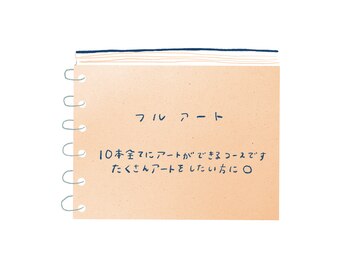 フル アート
10本全てにアートができるコースです
たくさんアートをしたい方に○